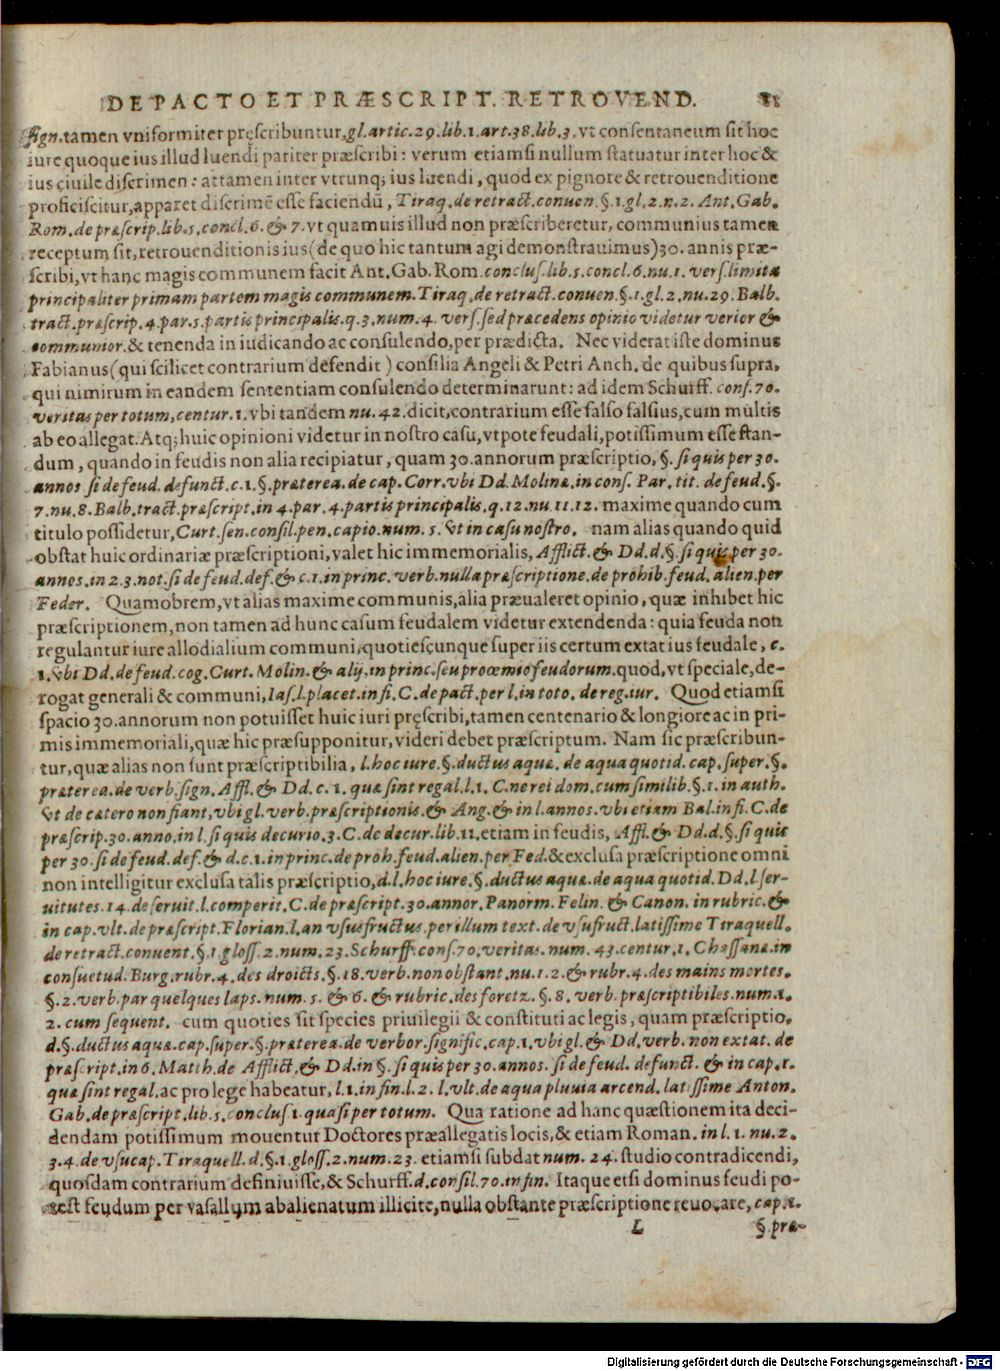 DE PACTO ET PRÆSCRIPT. RETROVEND.
sign. tamen vniformiter pręscribuntur, gl. artic. 29. lib. 1. art. 38. lib. 3. vt consentaneum sit hoc
iure quoque ius illud luendi pariter præscribi: verum etiamsi nullum statuatur inter hoc &
ius ciuile discrimen: attamen inter vtrunq; ius luendi, quod ex pignore & retrouenditione
proficiscitur, apparet discrimē esse faciendū, Tiraq. de retract. conuen. §. 1. gl. 2. n. 2. Ant. Gab.
Rom. de præscrip. lib. 5. concl. 6. & 7. vt quamuis illud non præscriberetur, communius tamen
receptum sit, retrouenditionis ius (de quo hic tantum agi demonstrauimus) 30. annis præ-
scribi, vt hanc magis communem facit Ant. Gab. Rom. conclus. lib. 5. concl. 6. nu. 1. vers. limita
principaliter primam partem magis communem. Tiraq. de retract. conuen. §. 1. gl. 2. nu. 29. Balb.
tract. præscrip. 4. par. 5. partis principalis. q. 3. num. 4. vers. sed præcedens opinio videtur verior &
communior. & tenenda in iudicando ac consulendo, per prædicta. Nec viderat iste dominus
Fabianus (qui scilicet contrarium defendit) consilia Angeli & Petri Anch. de quibus supra,
qui nimirum in eandem sententiam consulendo determinarunt: ad idem Schurff. cons. 70.
veritas per totum, centur. 1. vbi tandem nu. 42. dicit, contrarium esse falso falsius, cum multis
ab eo allegat. Atq; huic opinioni videtur in nostro casu, vtpote feudali, potissimum esse stan-
dum, quando in feudis non alia recipiatur, quam 30. annorum præscriptio, §. si quis per 30.
annos si de feud. defunct. c. 1. §. præterea. de cap. Corr. vbi Dd. Molinæ. in cons. Par. tit. de feud. §.
7. nu. 8. Balb. tract. præscript. in 4. par. 4. partis principalis. q. 12. nu. 11. 12. maxime quando cum
titulo possidetur, Curt. sen. consil. pen. capio. num. 5. & in casu nostro. nam alias quando quid
obstat huic ordinariæ præscriptioni, valet hic immemorialis, Afflict. & Dd. d. §. si quis per 30.
annos. in 2. 3. not. si de feud. def. & c. 1. in princ. verb. nulla præscriptione. de prohib. feud. alien. per
Feder. Quamobrem, vt alias maxime communis, alia præualeret opinio, quæ inhibet hic
præscriptionem, non tamen ad hunc casum feudalem videtur extendenda: quia feuda non
regulantur iure allodialium communi, quotiescunque super iis certum extat ius feudale, c.
1. & bi Dd. de feud. cog. Curt. Molin. & alij. in princ. seu prooemio feudorum. quod, vt speciale, de-
rogat generali & communi, Ias. l. placet. in fi. C. de pact. per l. in toto. de reg. iur. Quod etiamsi
spacio 30. annorum non potuisset huic iuri pręscribi, tamen centenario & longiore ac in pri-
mis immemoriali, quæ hic præsupponitur, videri debet præscriptum. Nam sic præscribun-
tur, quæ alias non sunt præscriptibilia, l. hoc iure. §. ductus aquæ. de aqua quotid. cap. super. §.
præterea. de verb. sign. Affl. & Dd. c. 1. quæ sint regal. l. 1. C. ne rei dom. cum similib. §. 1. in auth.
&t de cætero non fiant, vbi gl. verb. præscriptionis. & Ang. & in l. annos. vbi etiam Bal. in fi. C. de
præscrip. 30. anno. in l. si quis decurio. 3. C. de decur. lib. 11, etiam in feudis, Affl. & Dd. d. §. si quis
per 30. si de feud. def. & d. c. 1. in princ. de proh. feud. alien. per Fed. & exclusa præscriptione omni
non intelligitur exclusa talis præscriptio, d. l. hoc iure. §. ductus aquæ. de aqua quotid. Dd. l. ser-
uitutes. 14. de seruit. l. comperit. C. de præscript. 30. annor. Panorm. Felin. & Canon. in rubric. &
in cap. vlt. de præscript. Florian. l. an vsusfructus. per illum text. de vsufruct. latissime Tiraquell.
de retract. conuent. §. 1. gloss. 2. num. 23. Schurff. cons. 70. veritas. num. 43. centur. 1. Chassanæ. in
consuetud. Burg. rubr. 4. des droicts, §. 18. verb. non obstant. nu. 1. 2. & rubr. 4. des mains mortes.
§. 2. verb. par quelques laps. num. 5. & 6. & rubric. des foretz. §. 8. verb. præscriptibiles. num. 1.
2. cum sequent. cum quoties sit species priuilegii & constituti ac legis, quam præscriptio.
d. §. ductus aquæ. cap. super. §. præterea. de verbor. signific. cap. 1. vbi gl. & Dd. verb. non extat. de
præscript. in 6. Matth. de Afflict. & Dd. in §. si quis per 30. annos. si de feud. defunct. & in cap. 1.
quæ sint regal. ac pro lege habeatur, l. 1. in fin. l. 2. l. vlt. de aqua pluuia arcend. latissime Anton.
Gab. de præscript. lib. 5. conclus 1. quasi per totum. Qua ratione ad hanc quæstionem ita deci-
dendam potissimum mouentur Doctores præallegatis locis, & etiam Roman. in l. 1. nu. 2.
3. 4. de vsucap. Tiraquell. d. §. 1. gloss. 2. num. 23. etiamsi subdat num. 24. studio contradicendi,
quosdam contrarium definiuisse, & Schurff. d. consil. 70. in fin. Itaque etsi dominus feudi po-
test feudum per vasallum abalienatum illicite, nulla obstante præscriptione reuocare, cap. 1.
L §. præ-
Digitalisierung gefördert durch die Deutsche Forschungsgemeinschaft - DFG